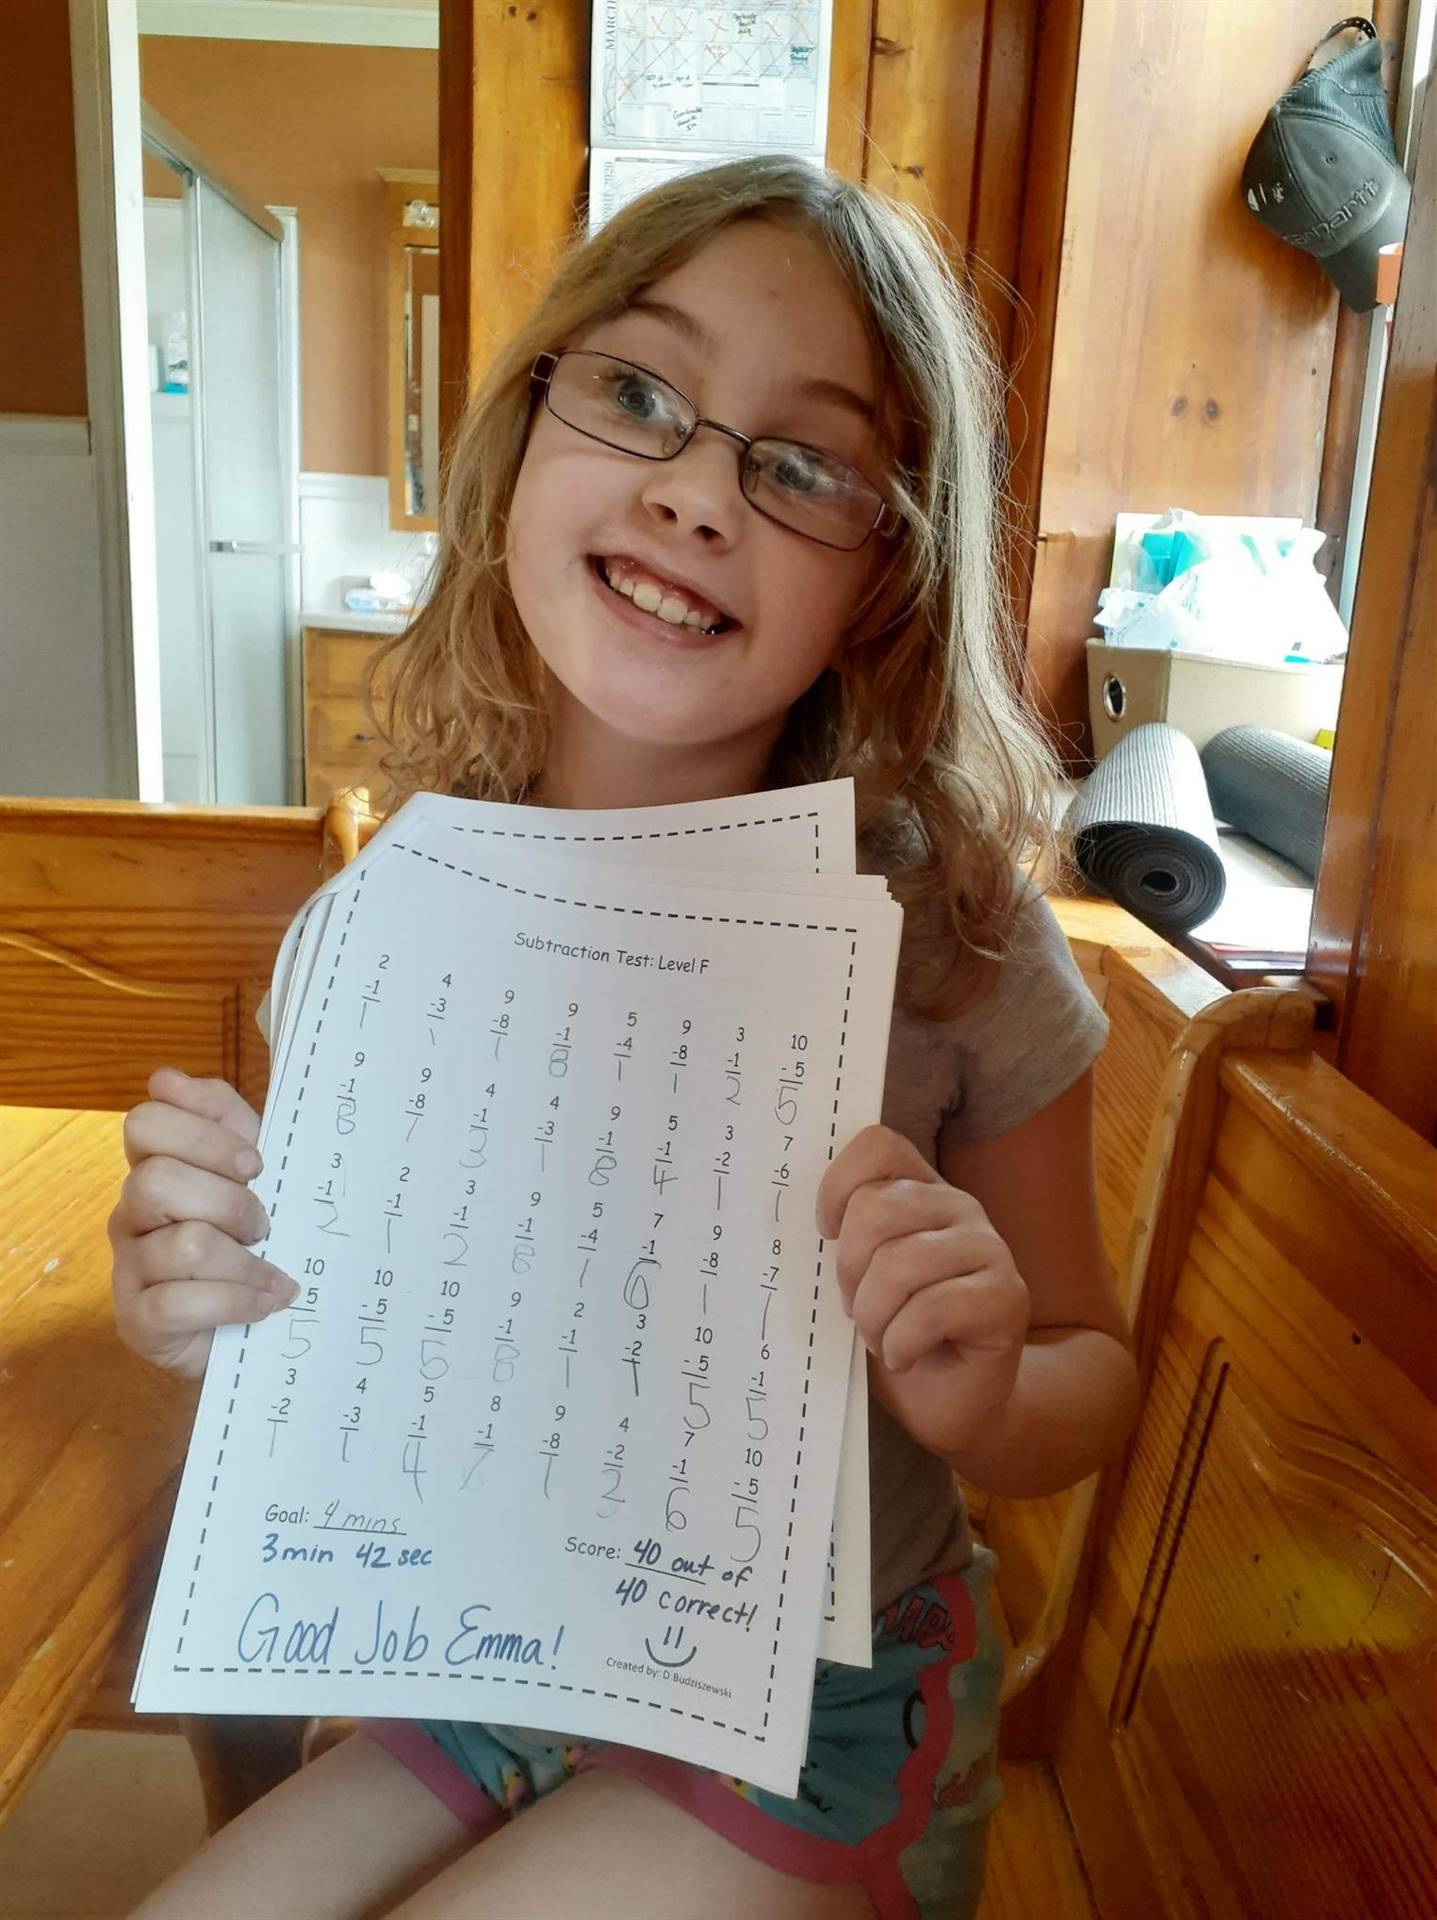 MARCH
Subtraction Test: Level F
2 4 9 9 5 9 3 10
-1 -3 -8 -1 -4 -8 -1 -5
1 1 1 8 1 1 2 5
9 9 4 4 9 5 3 7
-1 -8 -1 -3 -1 -1 -2 -6
8 1 3 1 8 4 1 1
3 2 3 9 5 7 9 8
-1 -1 -1 -1 -4 -1 -8 -7
2 1 2 8 1 6 1 1
10 10 10 9 2 3 10 6
5 -5 -5 -1 -1 -2 -5 -1
5 5 5 8 1 1 5 5
3 4 5 8 9 4 7 10
-2 -3 -1 -1 -8 -2 -1 -5
1 1 4 7 1 2 6 5
Goal: 4 mins
3 min 42 sec
Score: 40 out of
40 correct!
Good Job Emma!
Created by: D.Budziszewski